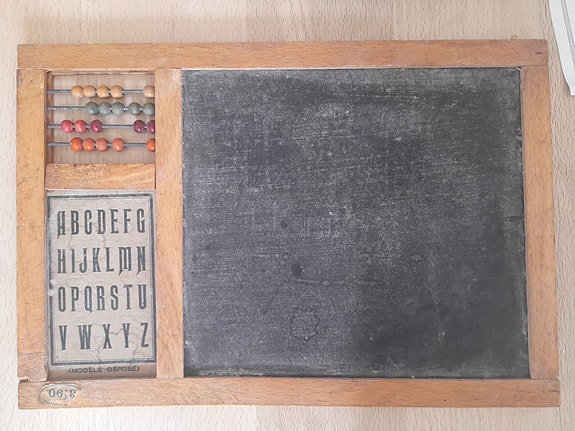 ABCDEFG
HIJKLMN
OPQRSTU
VWXYZ
(MODÈLE DÉPOSÉ)